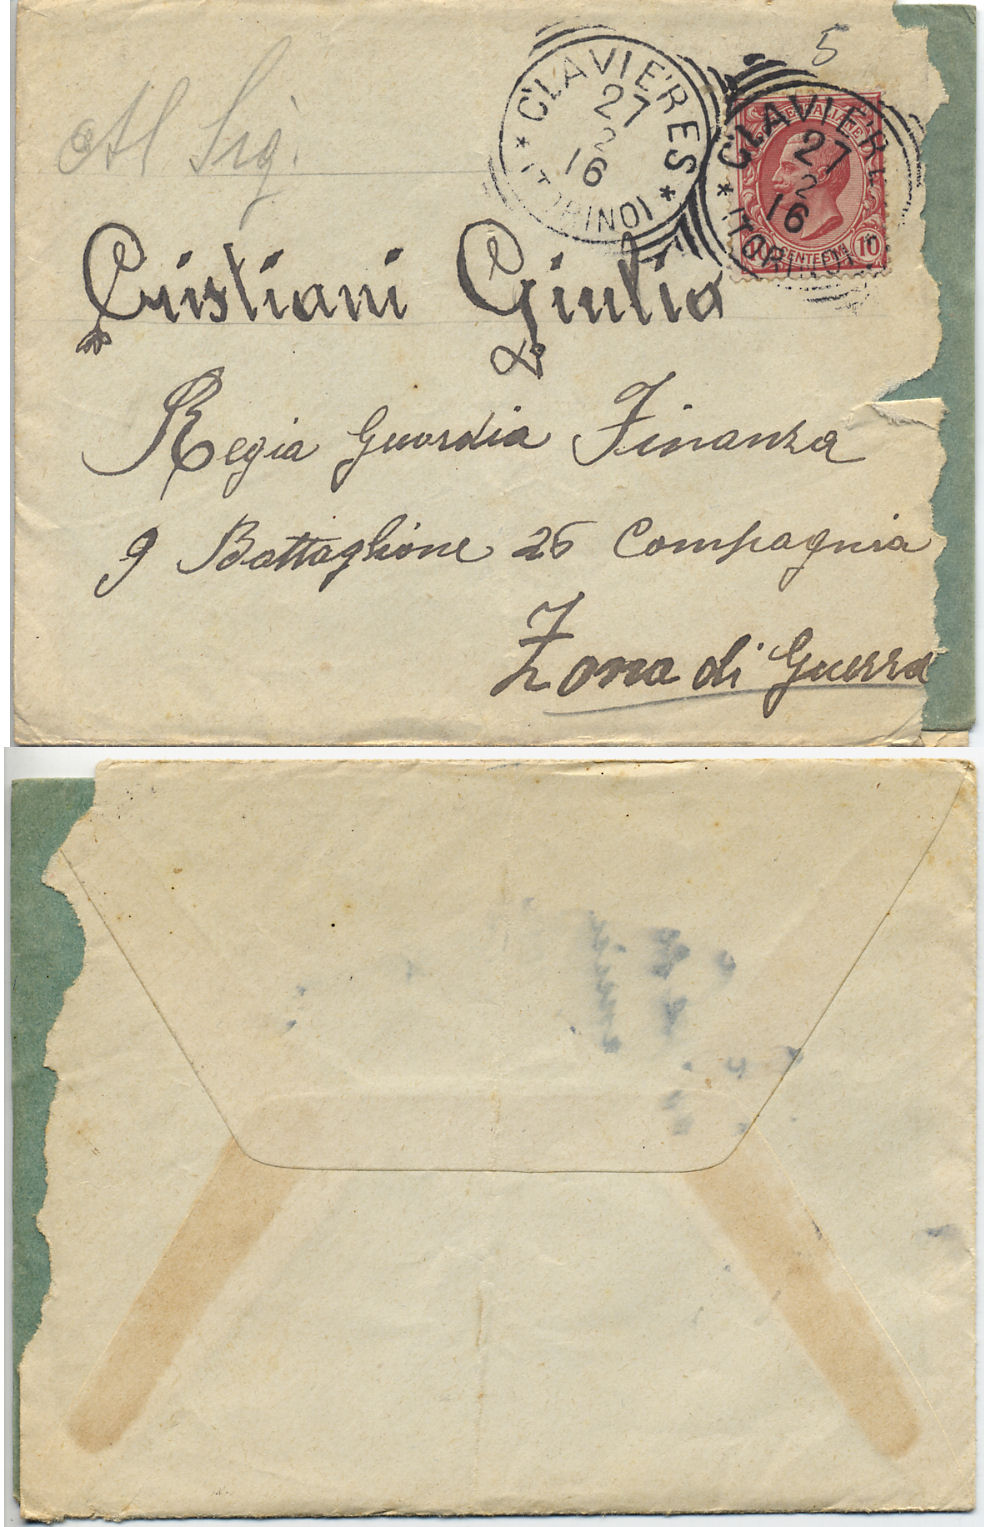 5
CLAVIERES
27
2
16
* (TORINO) *
CLAVIER
27
2
16
* (TORINO)
10
Al Sig.
Cristiani Giulio
Regia Guardia Finanza
9 Battaglione 26 Compagnia
Zona di Guerra